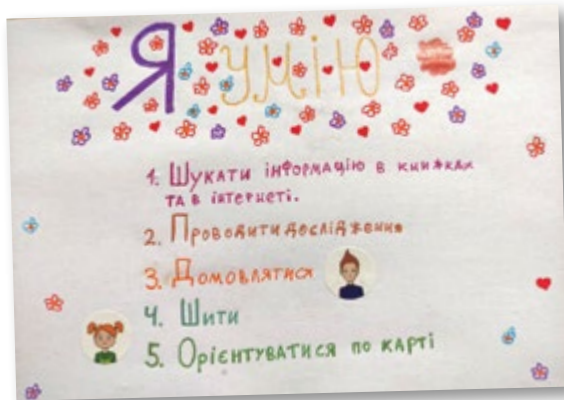 Я умію
1. Шукати інформацію в книжках
та в інтернеті.
2. Проводити дослідження
3. Домовлятися
4. Шити
5. Орієнтуватися по карті